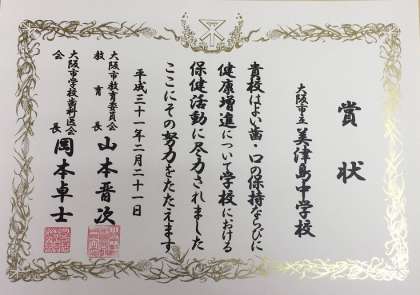 賞状
大阪市立 美津島中学校
貴校はよい歯・口の保持ならびに
健康増進について学校における
保健活動に尽力されました
ここにその努力をたたえます
平成三十一年二月二十一日
大阪市教育委員会
教育長 山本晋次
大阪市学校歯科医会
会長 岡本卓士